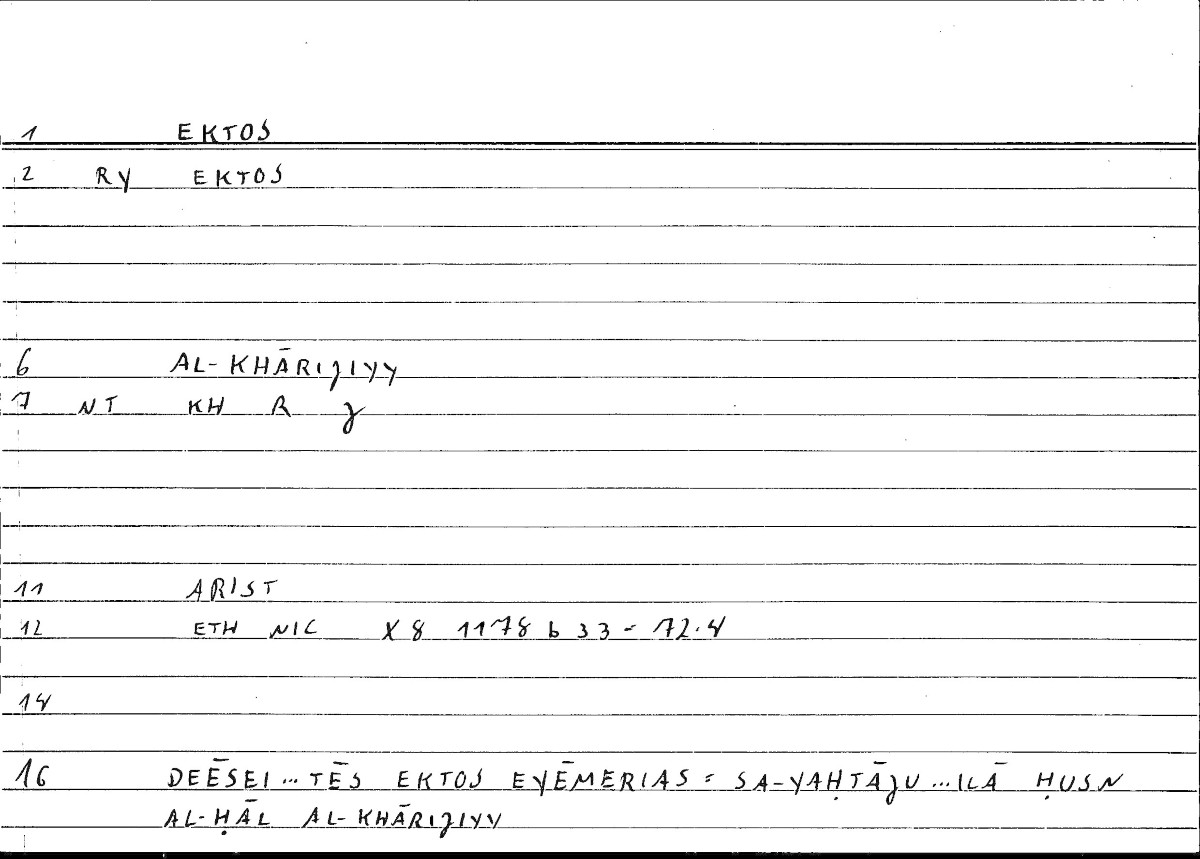 1 EKTOS
2 RY EKTOS
6 AL-KHĀRIJIYY
7 NT KH R J
11 ARIST
12 ETH NIC X 8 1178 b 33 = 72.4
14
16 DEĒSEI...TĒS EKTOS EYĒMERIAS = SA-YAḤTĀJU...ILĀ ḤUSN
AL-ḤĀL AL-KHĀRIJIYY